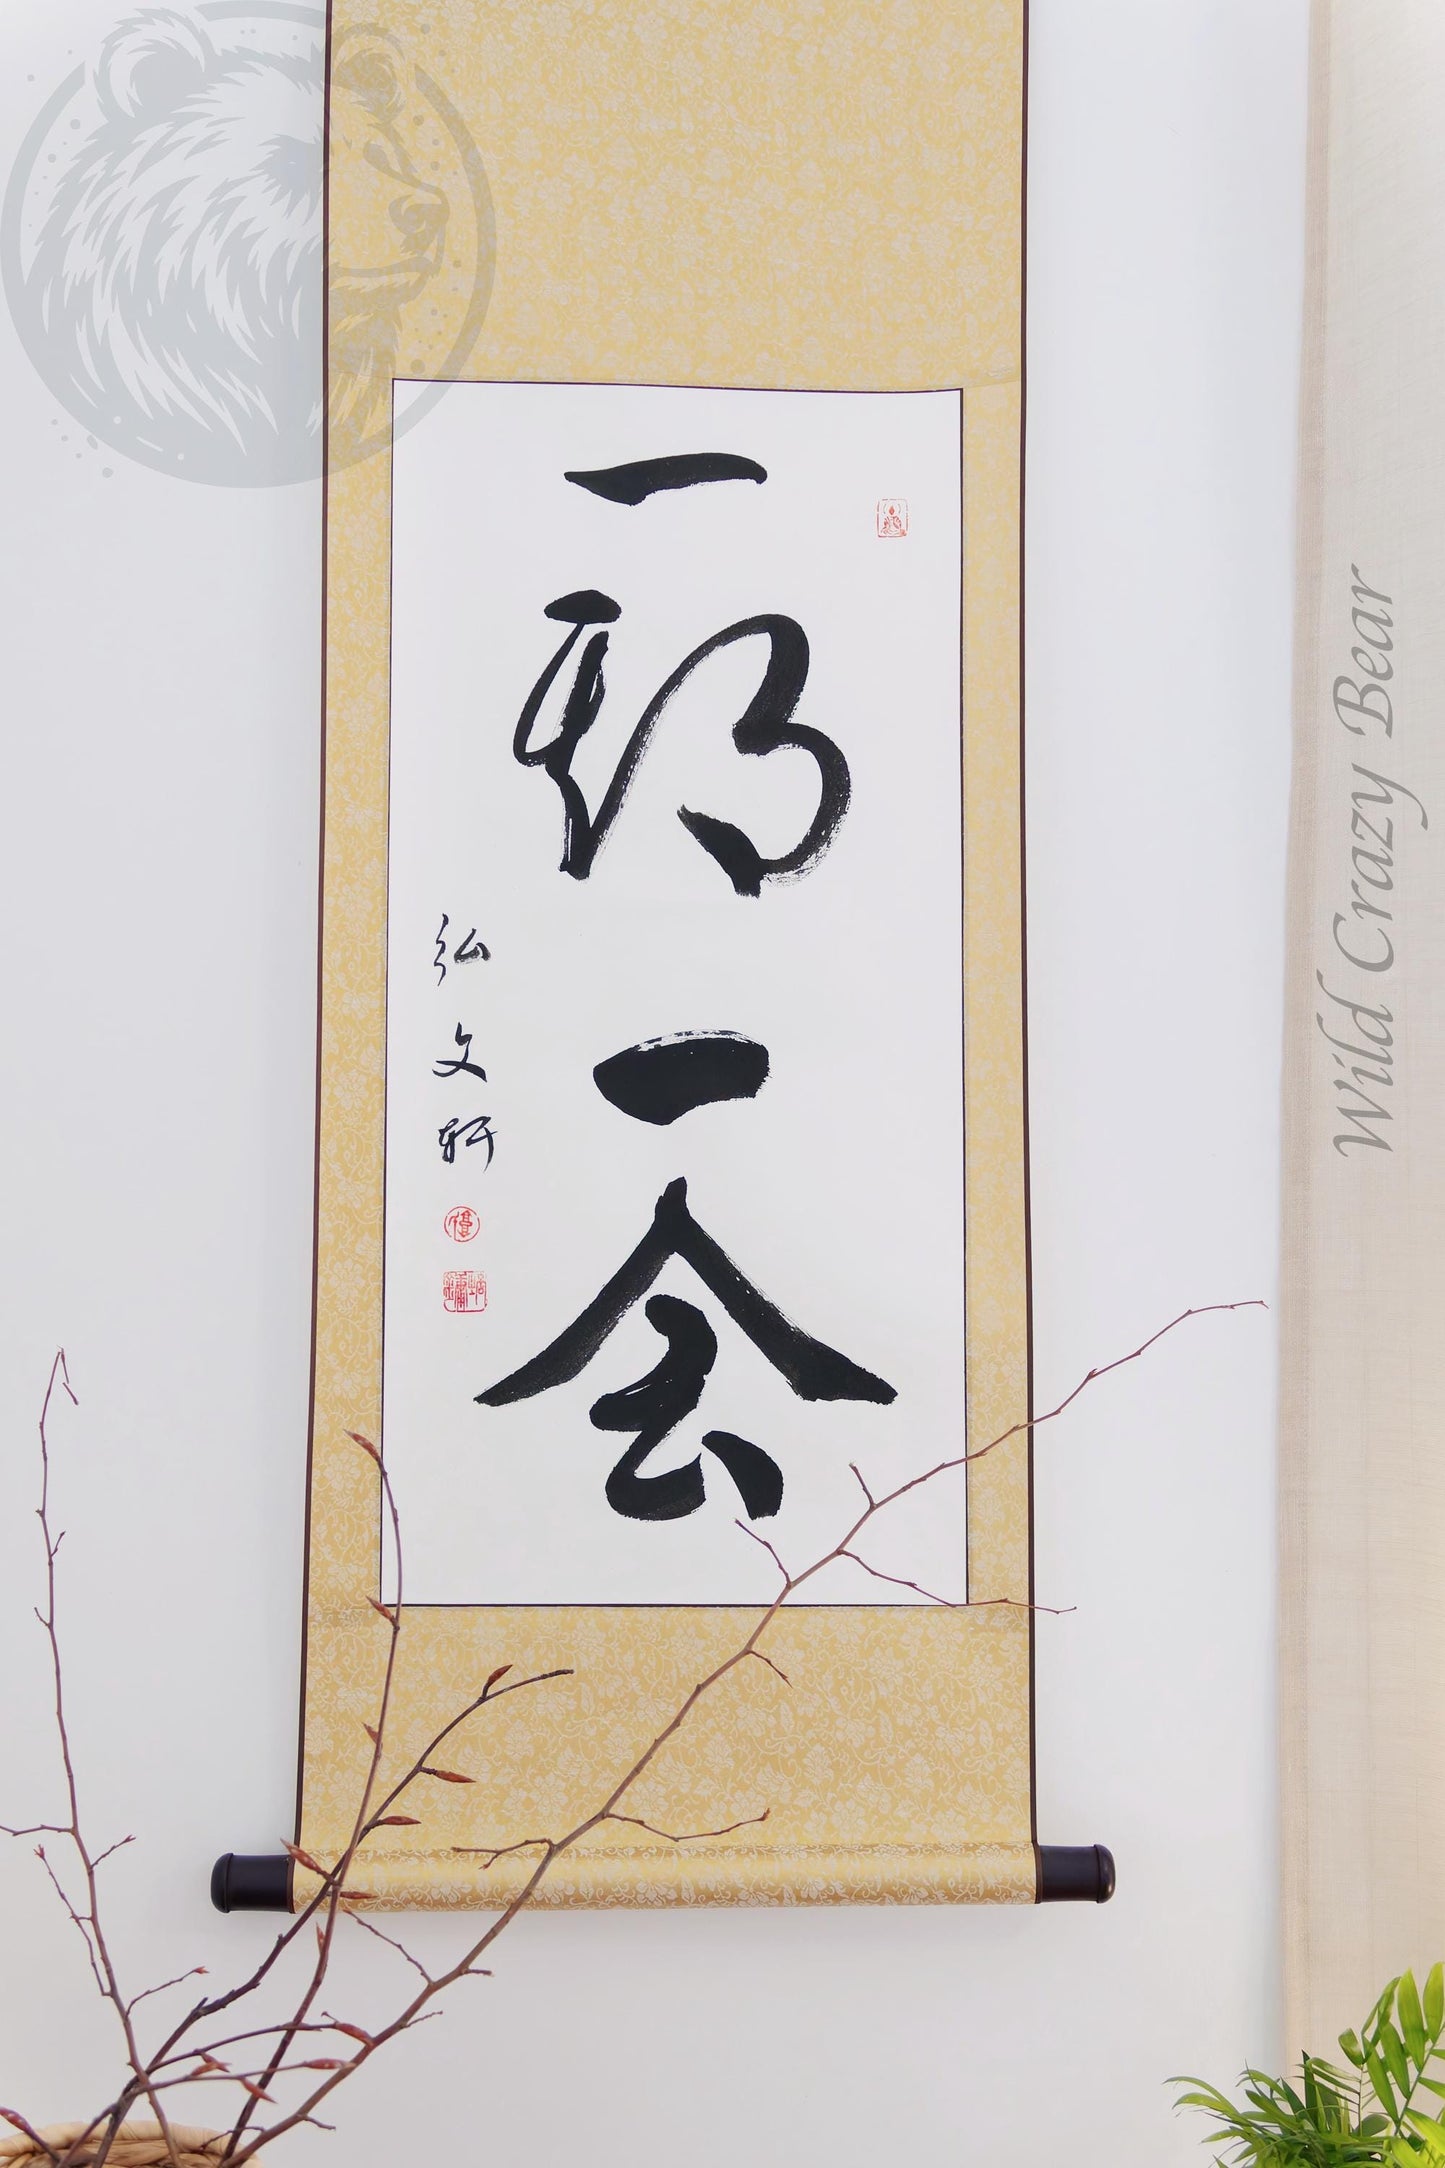 一期一会
弘文軒
Wild Crazy Bear